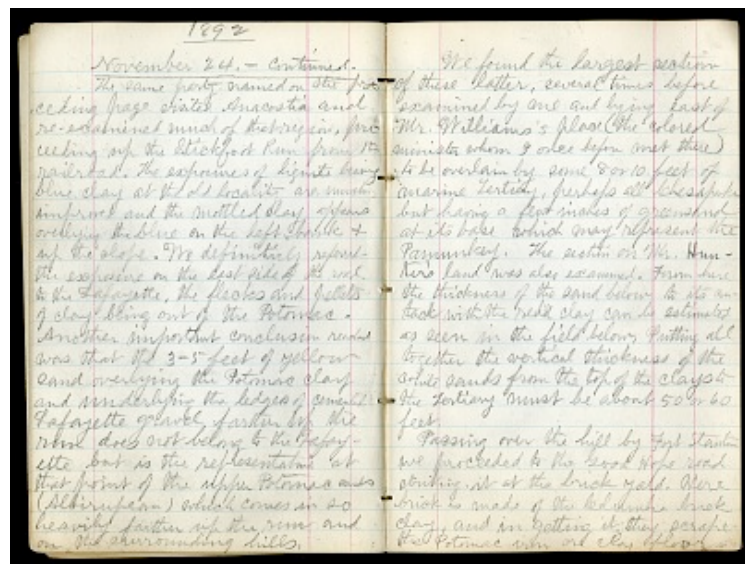 1892
November 24. — continued.
The same party named on the pre-
ceding page visited Anacostia and
re-examined much of that region, pro-
ceeding up the Stickfoot Run from the
railroad. The exposures of lignite being
blue clay at the old locality are much
improved and the mottled clay appears
overlying the blue on the left bank &
up the slope. We definitely referred
the exposure on the best side of the road
to the Lafayette, the flecks and pellets
of clay being out of the Potomac.
Another important conclusion reached
was that the 3-5 feet of yellow
sand overlying the Potomac clay
and underlying the ledges of cement
Lafayette gravel farther up the
run does not belong to the Lafay-
ette but is the representative at
that point of the upper Potomac sands
(Albirupean) which comes in so
heavily farther up the run and
on the surrounding hills.
We found the largest section
of these latter, several times before
examined by me and lying east of
Mr. Williams's place (the colored
minister whom I once before met there)
to be overlain by some 8 or 10 feet of
marine Tertiary, perhaps all Chesapeake
but having a few inches of greensand
at its base which may represent the
Pamunkey. The section on Mr. Hun-
ter's land was also examined. From here
the thickness of the sand below to its con-
tact with the red clay can be estimated
as seen in the field below. Putting all
together the vertical thickness of the
white sands from the top of the clays to
the Tertiary must be about 50 or 60
feet.
Passing over the hill by Fort Stanton
we proceeded to the Good Hope road
striking it at the brick yard. Here
brick is made of the Columbia brick
clay, and in getting it they scrape
the Potomac iron ore clay